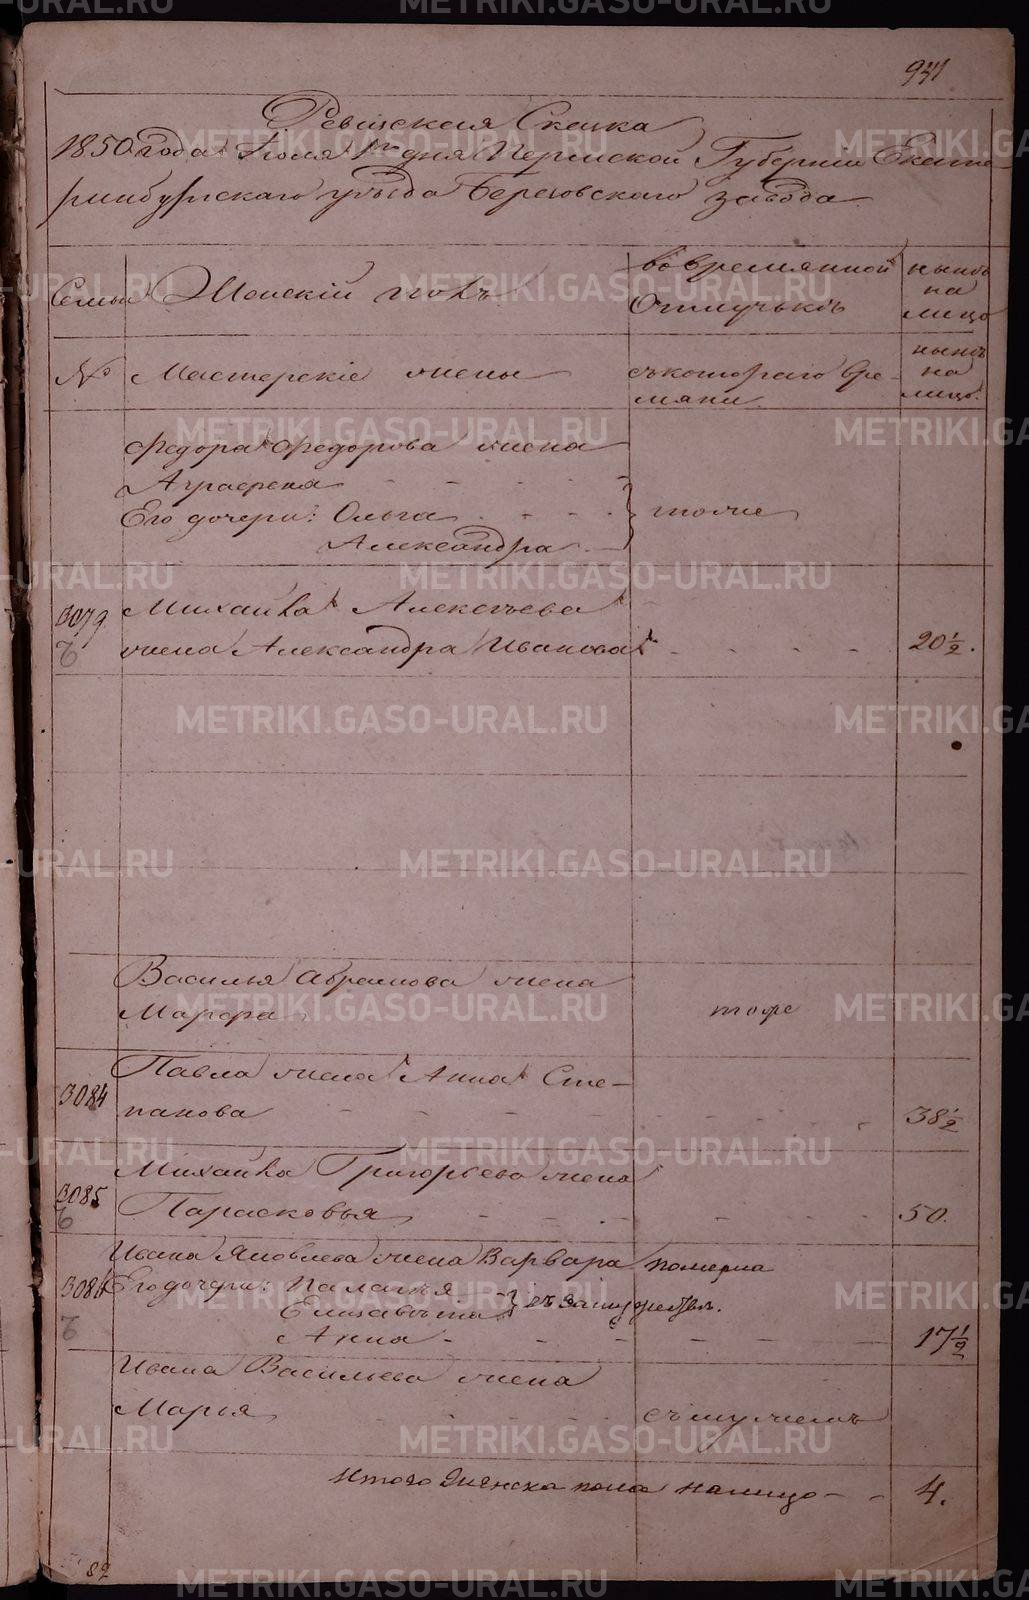 941
Ревижская Скаска
1850 года Июля 1го дня Пермской Губернии Екате-
ринбургскаго уѣзда Березовскаго завода
Семьи Женскій полъ во времянной Отлучькѣ нынѣ на лицо
№ Мастерскіе жены съ котораго вре-мяни нынѣ на лицо.
Федора Федорова жена
Аграфена
Его дочери: Ольга тоже
Александра
3079 Михаила Алексѣева
жена Александра Иванова 20 1/2.
Василья Абрамова жена
Марфа тоже
3084 Павла жена Анна Сте-
панова 38 1/2
3085 Михаила Григорьева жена
Парасковья 50.
3086 Ивана Яковлева жена Варвара померла
Его дочери: Паланья
Елизавѣта въ замужествѣ.
Анна 17 1/2
Ивана Васильева жена
Марья съ мужемъ
Итого женска пола налицо 4.
82
METRIKI.GASO-URAL.RU